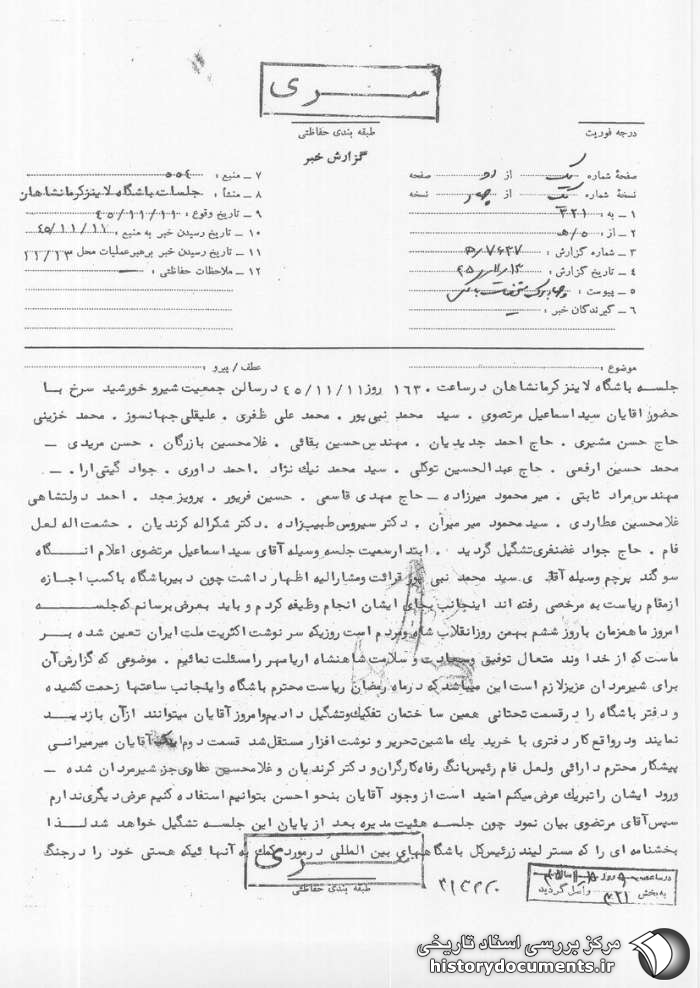 سری
طبقه بندی حفاظتی
گزارش خبر
درجه فوریت
صفحهٔ شماره یک از دو صفحه
نسخهٔ شماره یک از چهار نسخه
۱ – به : ۳۲۱
۲ – از : ۵/ھ
۳ – شماره گزارش : ۵/۷۶۳۷
۴ – تاریخ گزارش :
۵ – پیوست :
۶ – گیرندگان خبر :
۷ – منبع : ۵۵۴
۸ – منشأ : جلسات باشگاه لاینز کرمانشاهان
۹ – تاریخ وقوع : ۴۵/۱۱/۱۱
۱۰ – تاریخ رسیدن خبر به منبع : ۴۵/۱۱/۱۱
۱۱ – تاریخ رسیدن خبر برهبر عملیات محل ۱۱/۱۳
۱۲ – ملاحظات حفاظتی : –
موضوع :
عطف / پیرو :
جلسه باشگاه لاینز کرمانشاهان درساعت ۱۶۳۰ روز ۴۵/۱۱/۱۱ درسالن جمعیت شیرو خورشید سرخ با
حضور اقایان سید اسماعیل مرتضوی . سید محمد نبی پور . محمد علی ظفری . علیقلی جهانسوز . محمد خزینی
حاج حسن مشیری . حاج احمد جدیدیان . مهندس حسین بقائی . غلامحسین بازرگان . حسن مریدی –
محمد حسین ارفعی . حاج عبدالحسین توکلی . سید محمد نیک نژاد . احمد داوری . جواد گیتی ارا . –
مهندس مراد ثابتی . میر محمود میرزاده – حاج مهدی قاسمی . حسین فریور . پرویز مجد . احمد دولتشاهی
غلامحسین عطاردی . سید محمود میر میران . دکتر سیروس طبیب زاده . دکتر شکراله کرندیان . حشمت اله لعل
فام . حاج جواد غضنفری تشگیل گردید . ابتدا رسمیت جلسه وسیله آقای سید اسماعیل مرتضوی اعلام انگاه
سوگند پرچم وسیله آقای سید محمد نبی پور قرائت ومشارالیه اظهار داشت چون دبیرباشگاه باکسب اجازه
ازمقام ریاست به مرخصی رفته اند اینجانب بجای ایشان انجام وظیفه کردم و باید بعرض برسانم که جلسه
امروز ما همزمان باروز ششم بهمن روزانقلاب شاه ومردم است روزیکه سرنوشت اکثریت ملت ایران تعین شده بر
ماست که از خداوند متعال توفیق وسعادت و سلامت شاهنشاه اریامهر رامسئلت نمائیم . موضوعی که گزارش آن
برای شیرمردان عزیزلازم است این میباشد که درماه رمضان ریاست محترم باشگاه واینجانب ساعتها زحمت کشیده
و دفتر باشگاه را درقسمت تحتانی همین ساختمان تفکیک وتشگیل دادیم وامروز آقایان میتوانند ازآن بازدید
نمایند ودرواقع کار دفتری با خرید یک ماشین تحریر و نوشت افزار مستقل شد قسمت دوم اینکه آقایان میرمیرانی
پیشکار محترم دارائی ولعل فام رئیس بانگ رفاه کارگران و دکتر کرندیان و غلامحسین عطاردی جزء شیرمردان شده –
ورود ایشان راتبریک عرض میکنم امید است از وجود آقایان بنحو احسن بتوانیم استفاده کنیم عرض دیگری ندارم
سپس آقای مرتضوی بیان نمود چون جلسه هئیت مدیره بعد از پایان این جلسه تشگیل خواهد شد لذا
بخشنامه ای را که مستر لیندزرئیس کل باشگاههای بین المللی درمورد کمک به آنهائیکه هستی خود را درجنگ
سری
طبقه بندی حفاظتی
درساعت روز
به بخش ۳۲۱ واصل گردید
مرکز بررسی اسناد تاریخی
historydocuments.ir